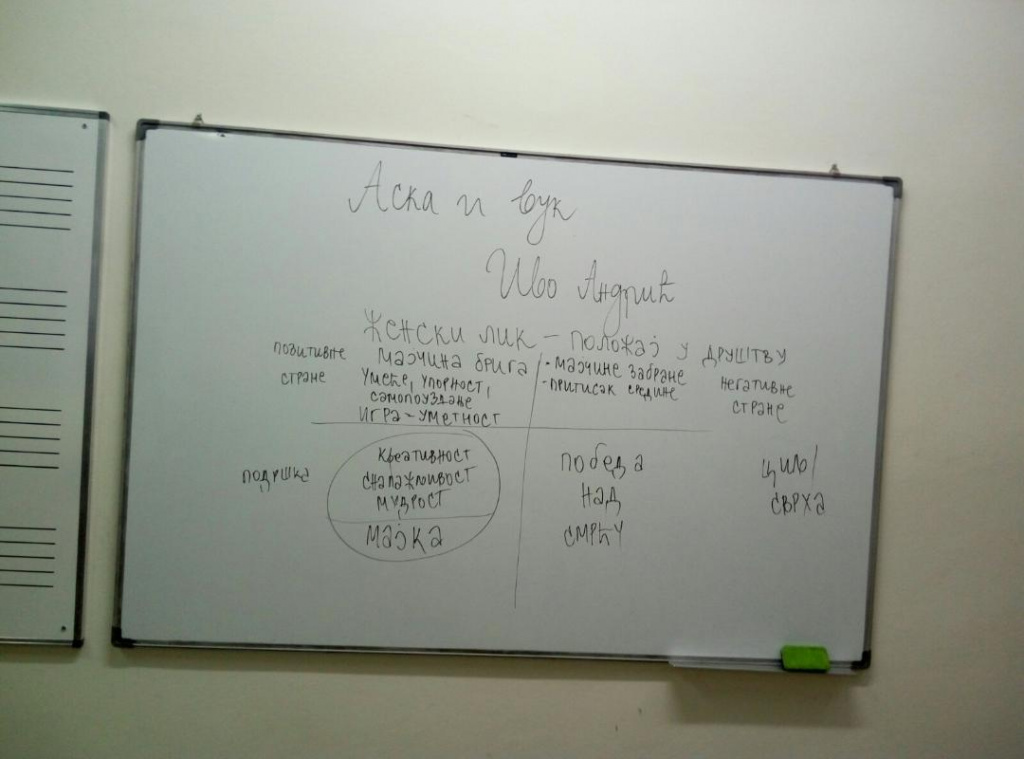 Аска и вук
Иво Андрић
Женски лик – положај у друштву
позитивне
стране
мајчина брига
умеће, упорност,
самопоуздање
игра – уметност
- мајчине забране
- притисак средине
негативне
стране
подршка
креативност
сналажљивост
мудрост
мајка
победа
над
смрћу
циљ/
сврха